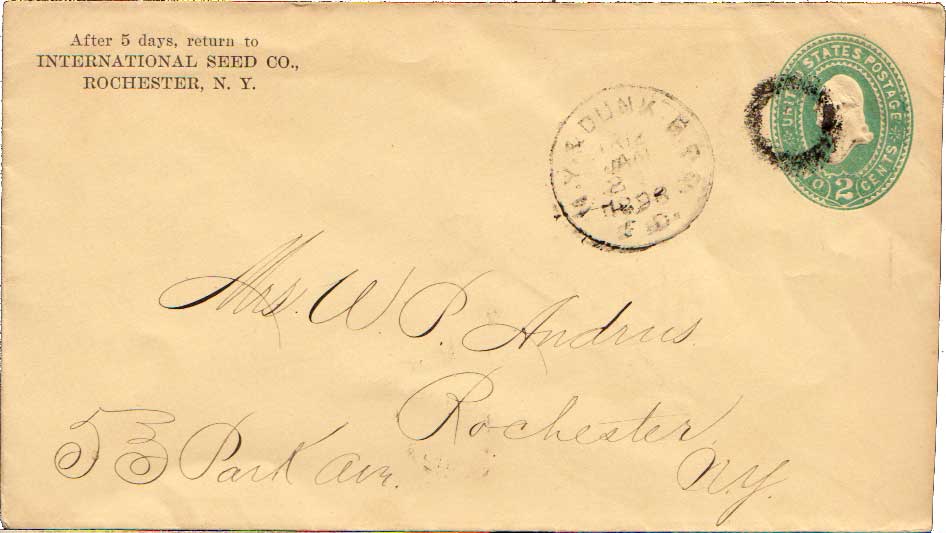 After 5 days, return to
INTERNATIONAL SEED CO.,
ROCHESTER, N. Y.
N.Y. & DUNK. R.P.O.
UNITED STATES POSTAGE
TWO 2 CENTS
Mrs. W. P. Andrus.
Rochester
53 Park Ave.
N.Y.